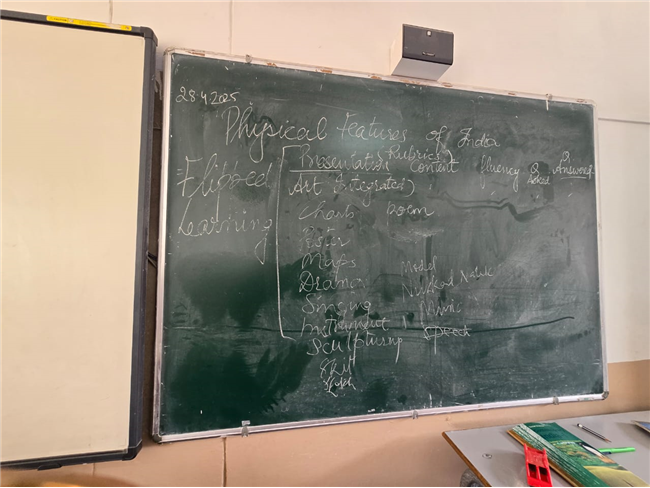 28.4.2025
Physical Features of India
Flipped Learning
(Rubrics)
Presentation Content fluency Q Asked Answered
Art Integrated)
Charts poem
Maps Model
Drama Nukkad Natak
Singing Mimic
Instrument
Sculpturing speech
Skit